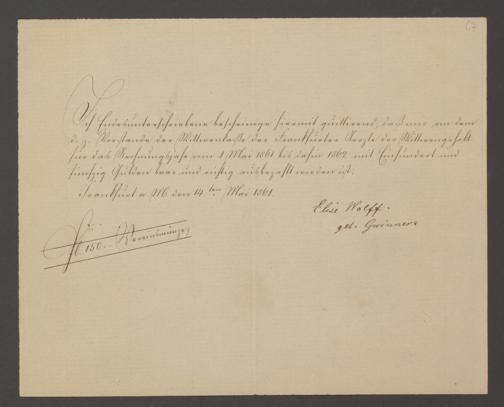 67
Ich Endesunterschriebene bescheinige hiermit quittirend, daß mir von dem
d. z. Vorstande der Wittwenkasse der Frankfurter Aerzte der Wittwengehalt
für das Rechnungsjahr vom 1 Mai 1861 bis dahin 1862 mit Einhundert und
fünfzig Gulden baar und richtig ausbezahlt worden ist.
Frankfurt a/M. den 14.ten Mai 1861.
Elise Wolff.
geb. Gwinner.
Fl. 150.- Vereinsmünze